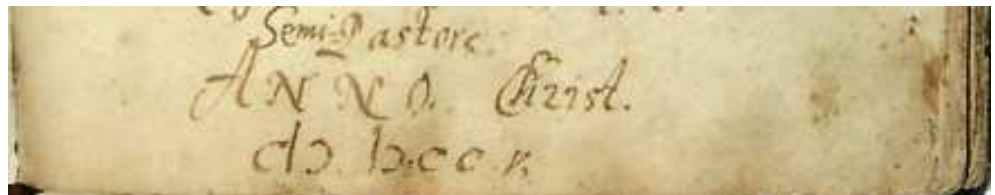 Semi-Pastore.
ANNO. Christ.
cIɔ. Iɔ.c c. v.